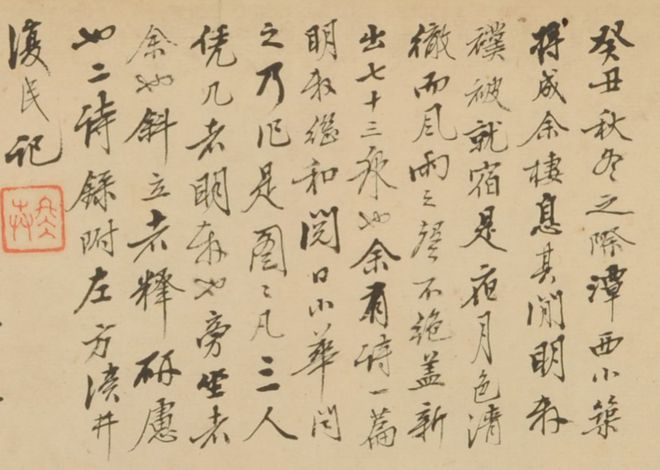 癸丑秋冬之際潭西小築
将成余棲息其間明叔
襆被就宿是夜月色清
徹而風雨之聲不絶盖新
出七十三泉也余有詩一篇
明叔继和閱日小華聞
之乃作是圖〻凡三人
凭几者明叔也旁坐者
余也斜立者釋研慮
也二詩錄附左方瀆井
復民記